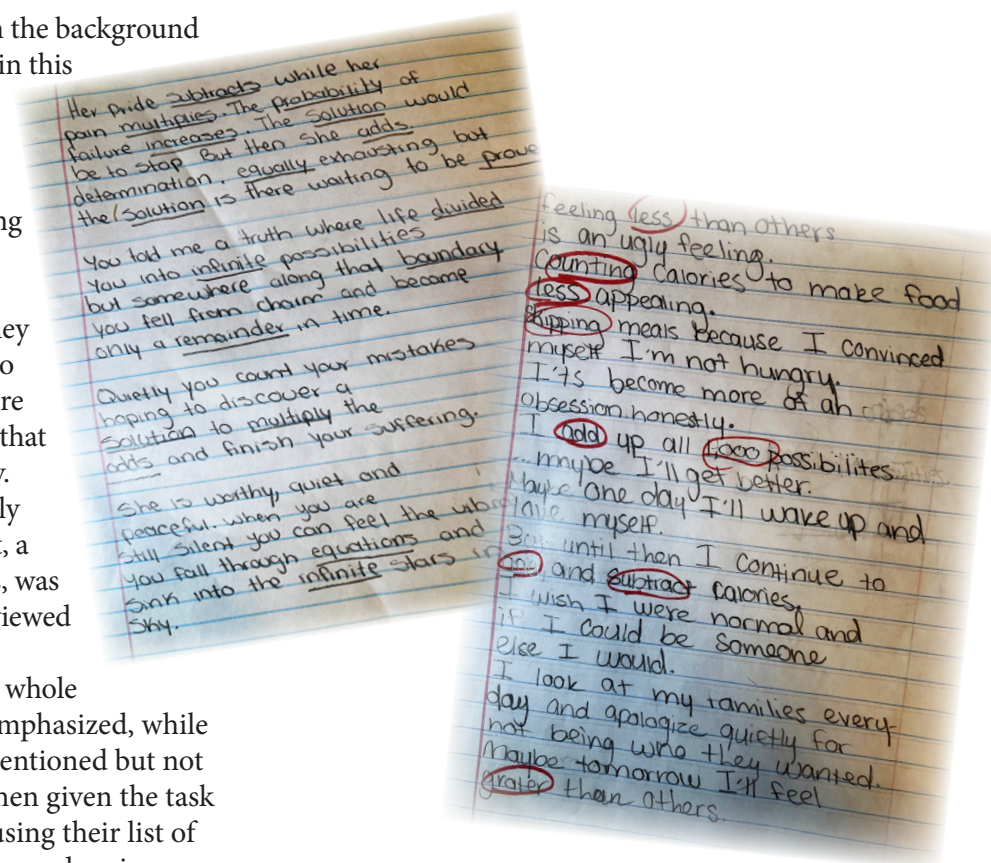 n the background
in this
ng
ey
o
re
that
y.
ly
t, a
s, was
viewed
whole
mphasized, while
entioned but not
hen given the task
using their list of
Her Pride subtracts while her
pain multiplies. The probability of
failure increases. The solution would
be to stop But then she adds
determination, equally exhausting but
the solution is there waiting to be prove
You told me a truth where life divided
you into infinite possibilities
but somewhere along that boundary
you fell from charm and became
only a remainder in time.
Quietly you count your mistakes
hoping to discover a
solution to multiply the
odds and finish your suffering.
She is worthy, quiet and
peaceful. when you are
still silent you can feel the
you fall through equations and
sink into the infinite stars in
sky.
feeling less than others
is an ugly feeling.
Counting Calories to make food
less appealing.
skipping meals because I convinced
myself I'm not hungry.
I'ts become more of an
obsession honestly.
I add up all 1,000 possibilites
maybe I'll get better.
Maybe one day I'll wake up and
myself.
But until then I continue to
add and subtract calories,
I wish I were normal and
if I could be someone
else I would.
I look at my families every-
day and apologize quietly for
not being who they wanted.
Maybe tomorrow I'll feel
grater than others.